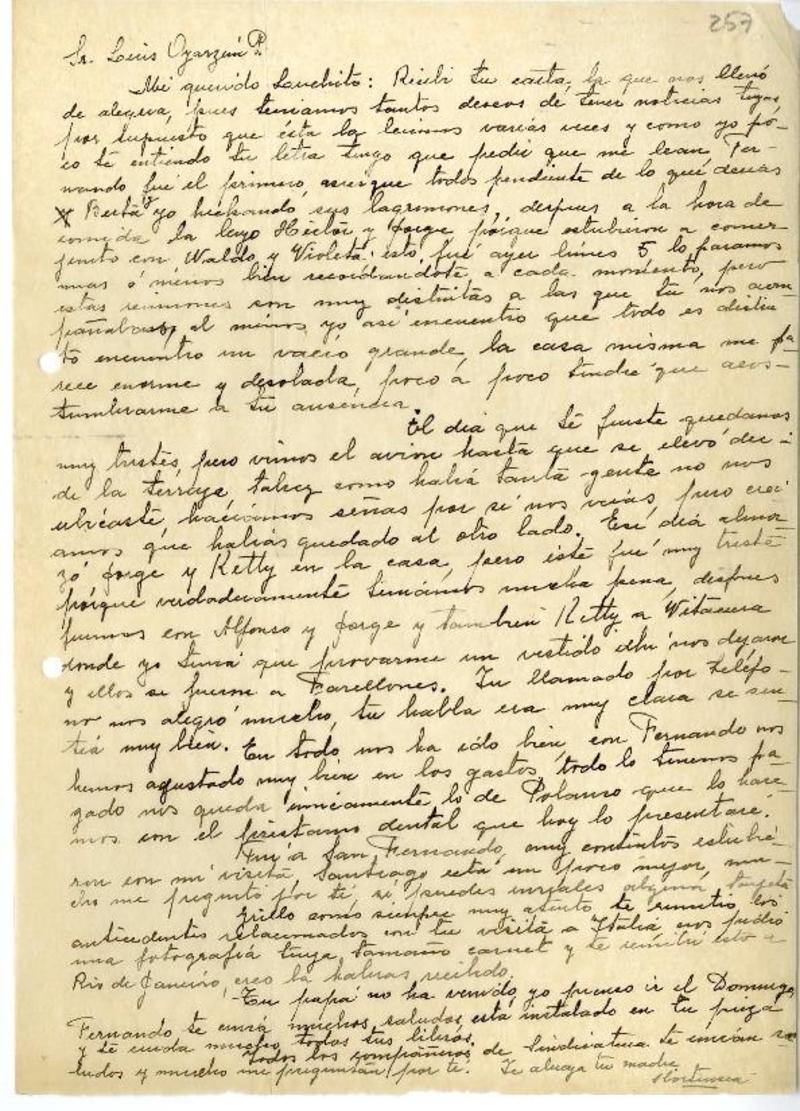 257
Sr. Luis Oyarzún P.
Mi querido Luuchito: Recibí tu carta, la que nos llenó
de alegria, pues teniamos tantos deseos de tener noticias tuyas,
por supuesto que ésta la leimos varias veces y como yo po-
co te entiendo tu letra tengo que pedir que me lean Fer-
nando fué el primero, asi que todos pendiente de lo que decias
Berta y yo hechando sus lagrimones, despues a la hora de
comida la leyo Héctor y Jorge porque estubieron a comer
junto con Waldo y Violeta esto fué ayer lunes 5 lo pasamos
mas ó menos bien recordandote a cada momento, pero
estas reuniones son muy distintas a las que tu nos acom
pañabas, al menos yo asi encuentro que todo es distin-
to encuentro un vacio grande, la casa misma me pa-
rece enorme y desolada, poco a poco tendré que acos-
tumbrarme a tu ausencia.
El dia que te fuiste quedamos
muy tristes, pero vimos el avion hasta que se elevó des-
de la terraza, talvez como habia tanta gente no nos
ubicaste, haciamos señas por si nos veias, pero crei
amos que habias quedado al otro lado. Ese dia almor
zó Jorge y Ketty en la casa, pero éste fué muy triste
porque verdaderamente teniamos mucha pena, despues
fuimos con Alfonso y Jorge y tambien Ketty a Vitacura
donde yo tenia que provarme un vestido ahi nos dejaron
y ellos se fueron a Farellones. Tu llamado por teléfo-
no nos alegró mucho, tu habla era muy clara se sen-
tia muy bien. En todo nos ha ido bien, con Fernando nos
hemos ajustado muy bien en los gastos, todo lo tenemos pa-
gado nos queda unicamente lo de Polanco que lo hare-
mos con el préstamo dental que hoy lo presentaré.
Fui a San Fernando, muy contentos estubie-
ron con mi visita, Santiago está un poco mejor, mu-
cho me preguntó por ti, si puedes enviales alguna tarjeta
Grillo como siempre muy atento te remitio los
antecedentes relacionados con tu visita a Italia, nos pidió
una fotografia tuya tamaño carnet y te remiti esto a
Rio de Janeiro, creo la habras recibido.
Tu papá no ha venido, yo pienso ir el Domingo,
Fernando te envia muchos saludos está instalado en tu pieza
y te cuida mucho todos tus libros.
Todos los compañeros de Sindicatura te envian sa
ludos y mucho me preguntan por ti. Te abraza tu madre
Hortensia